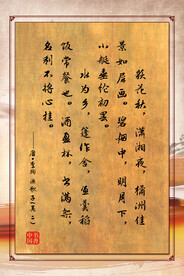 荻花秋，潇湘夜，橘洲佳
景如屏画。碧烟中，明月下，
小艇垂纶初罢。
水为乡，蓬作舍，鱼羹稻
饭常餐也。酒盈杯，书满架，
名利不将心挂。
唐·李珣 渔歌子